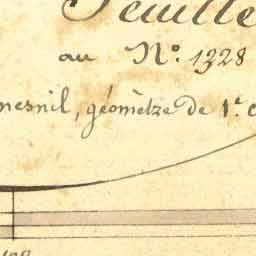 Feuille
au N.º 1328
mesnil, géomètre de 1.e c